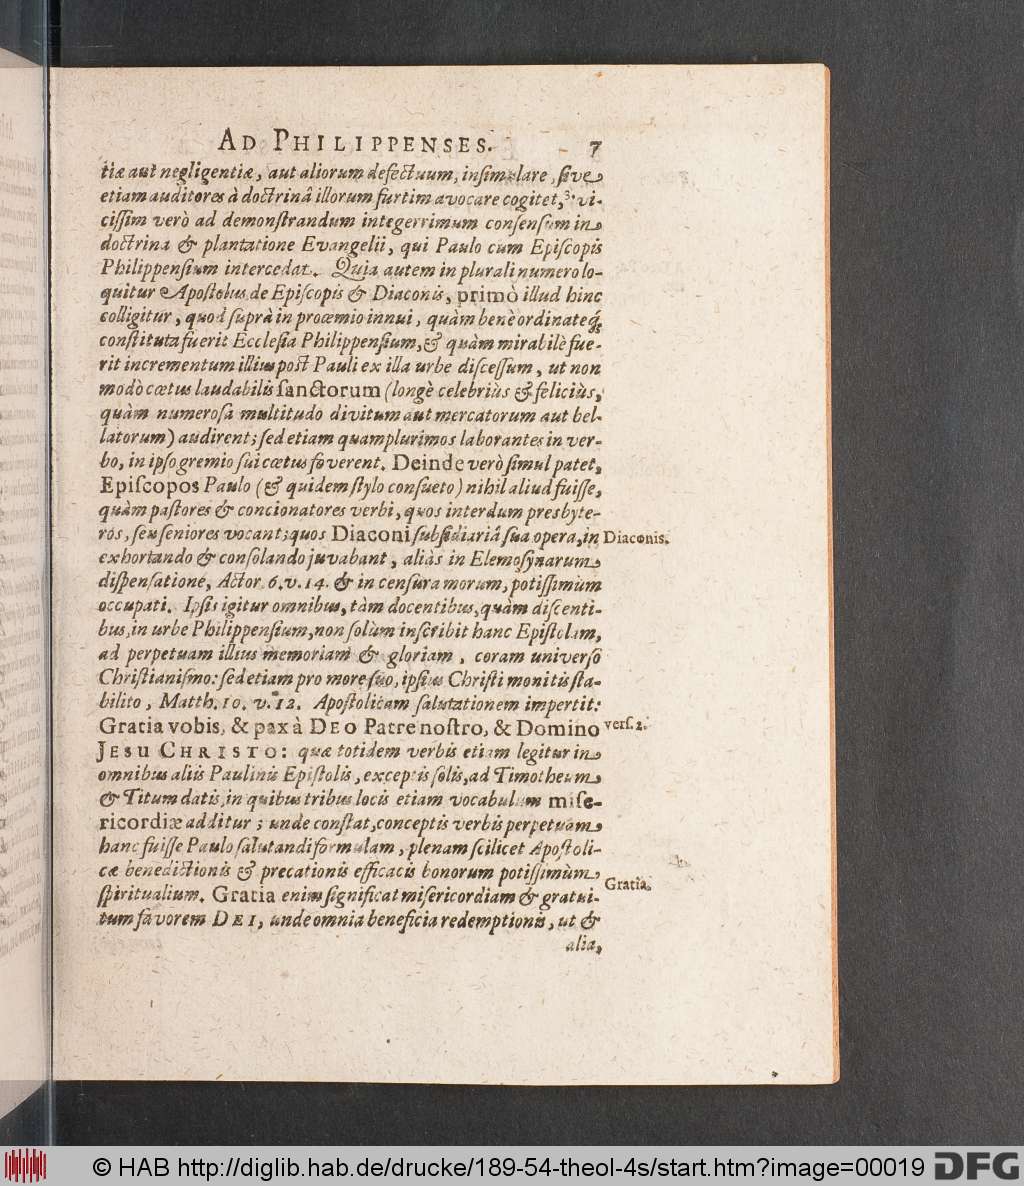 AD PHILIPPENSES. 7
tiæ aut negligentiæ, aut aliorum defectuum, insimulare, sive
etiam auditores à doctrinâ illorum furtim avocare cogitet, vi-
cissim verò ad demonstrandum integerrimum consensum in
doctrina & plantatione Evangelii, qui Paulo cum Episcopis
Philippensium intercedat. Quia autem in plurali numero lo-
quitur Apostolus de Episcopis & Diaconis, primò illud hinc
colligitur, quod suprà in proœmio innui, quàm benè ordinateq́;
constituta fuerit Ecclesia Philippensium, & quàm mirabilè fue-
rit incrementum illius post Pauli ex illa urbe discessum, ut non
modò cœtus laudabilis sanctorum (longè celebriùs & feliciùs,
quàm numerosa multitudo divitum aut mercatorum aut bel-
latorum) audirent; sed etiam quamplurimos laborantes in ver-
bo, in ipso gremio sui cœtus foverent. Deinde verò simul patet,
Episcopos Paulo (& quidem stylo consueto) nihil aliud fuisse,
quàm pastores & concionatores verbi, quos interdum presbyte-
ros, seu seniores vocant; quos Diaconi subsidiariâ sua opera, in
Diaconis.
exhortando & consolando juvabant, aliàs in Elemosynarum
dispensatione, Actor. 6. v. 14. & in censura morum, potissimùm
occupati. Ipsis igitur omnibus, tàm docentibus, quàm discenti-
bus, in urbe Philippensium, non solùm inscribit hanc Epistolam,
ad perpetuam illius memoriam & gloriam, coram universo
Christianismo: sed etiam pro more suo, ipsius Christi monitis sta-
bilito, Matth. 10. v. 12. Apostolicam salutationem impertit:
Gratia vobis, & pax à DEO Patre nostro, & Domino
vers. 2.
JESU CHRISTO: quæ totidem verbis etiam legitur in
omnibus aliis Paulinis Epistolis, exceptis solis, ad Timotheum
& Titum datis, in quibus tribus locis etiam vocabulum mise-
ricordiæ additur; unde constat, conceptis verbis perpetuam
hanc fuisse Paulo salutandi formulam, plenam scilicet Apostoli-
cæ benedictionis & precationis efficacis bonorum potissimùm
spiritualium. Gratia enim significat misericordiam & gratui-
Gratia.
tum favorem DEI, unde omnia beneficia redemptionis, ut &
alia,
© HAB http://diglib.hab.de/drucke/189-54-theol-4s/start.htm?image=00019
DFG